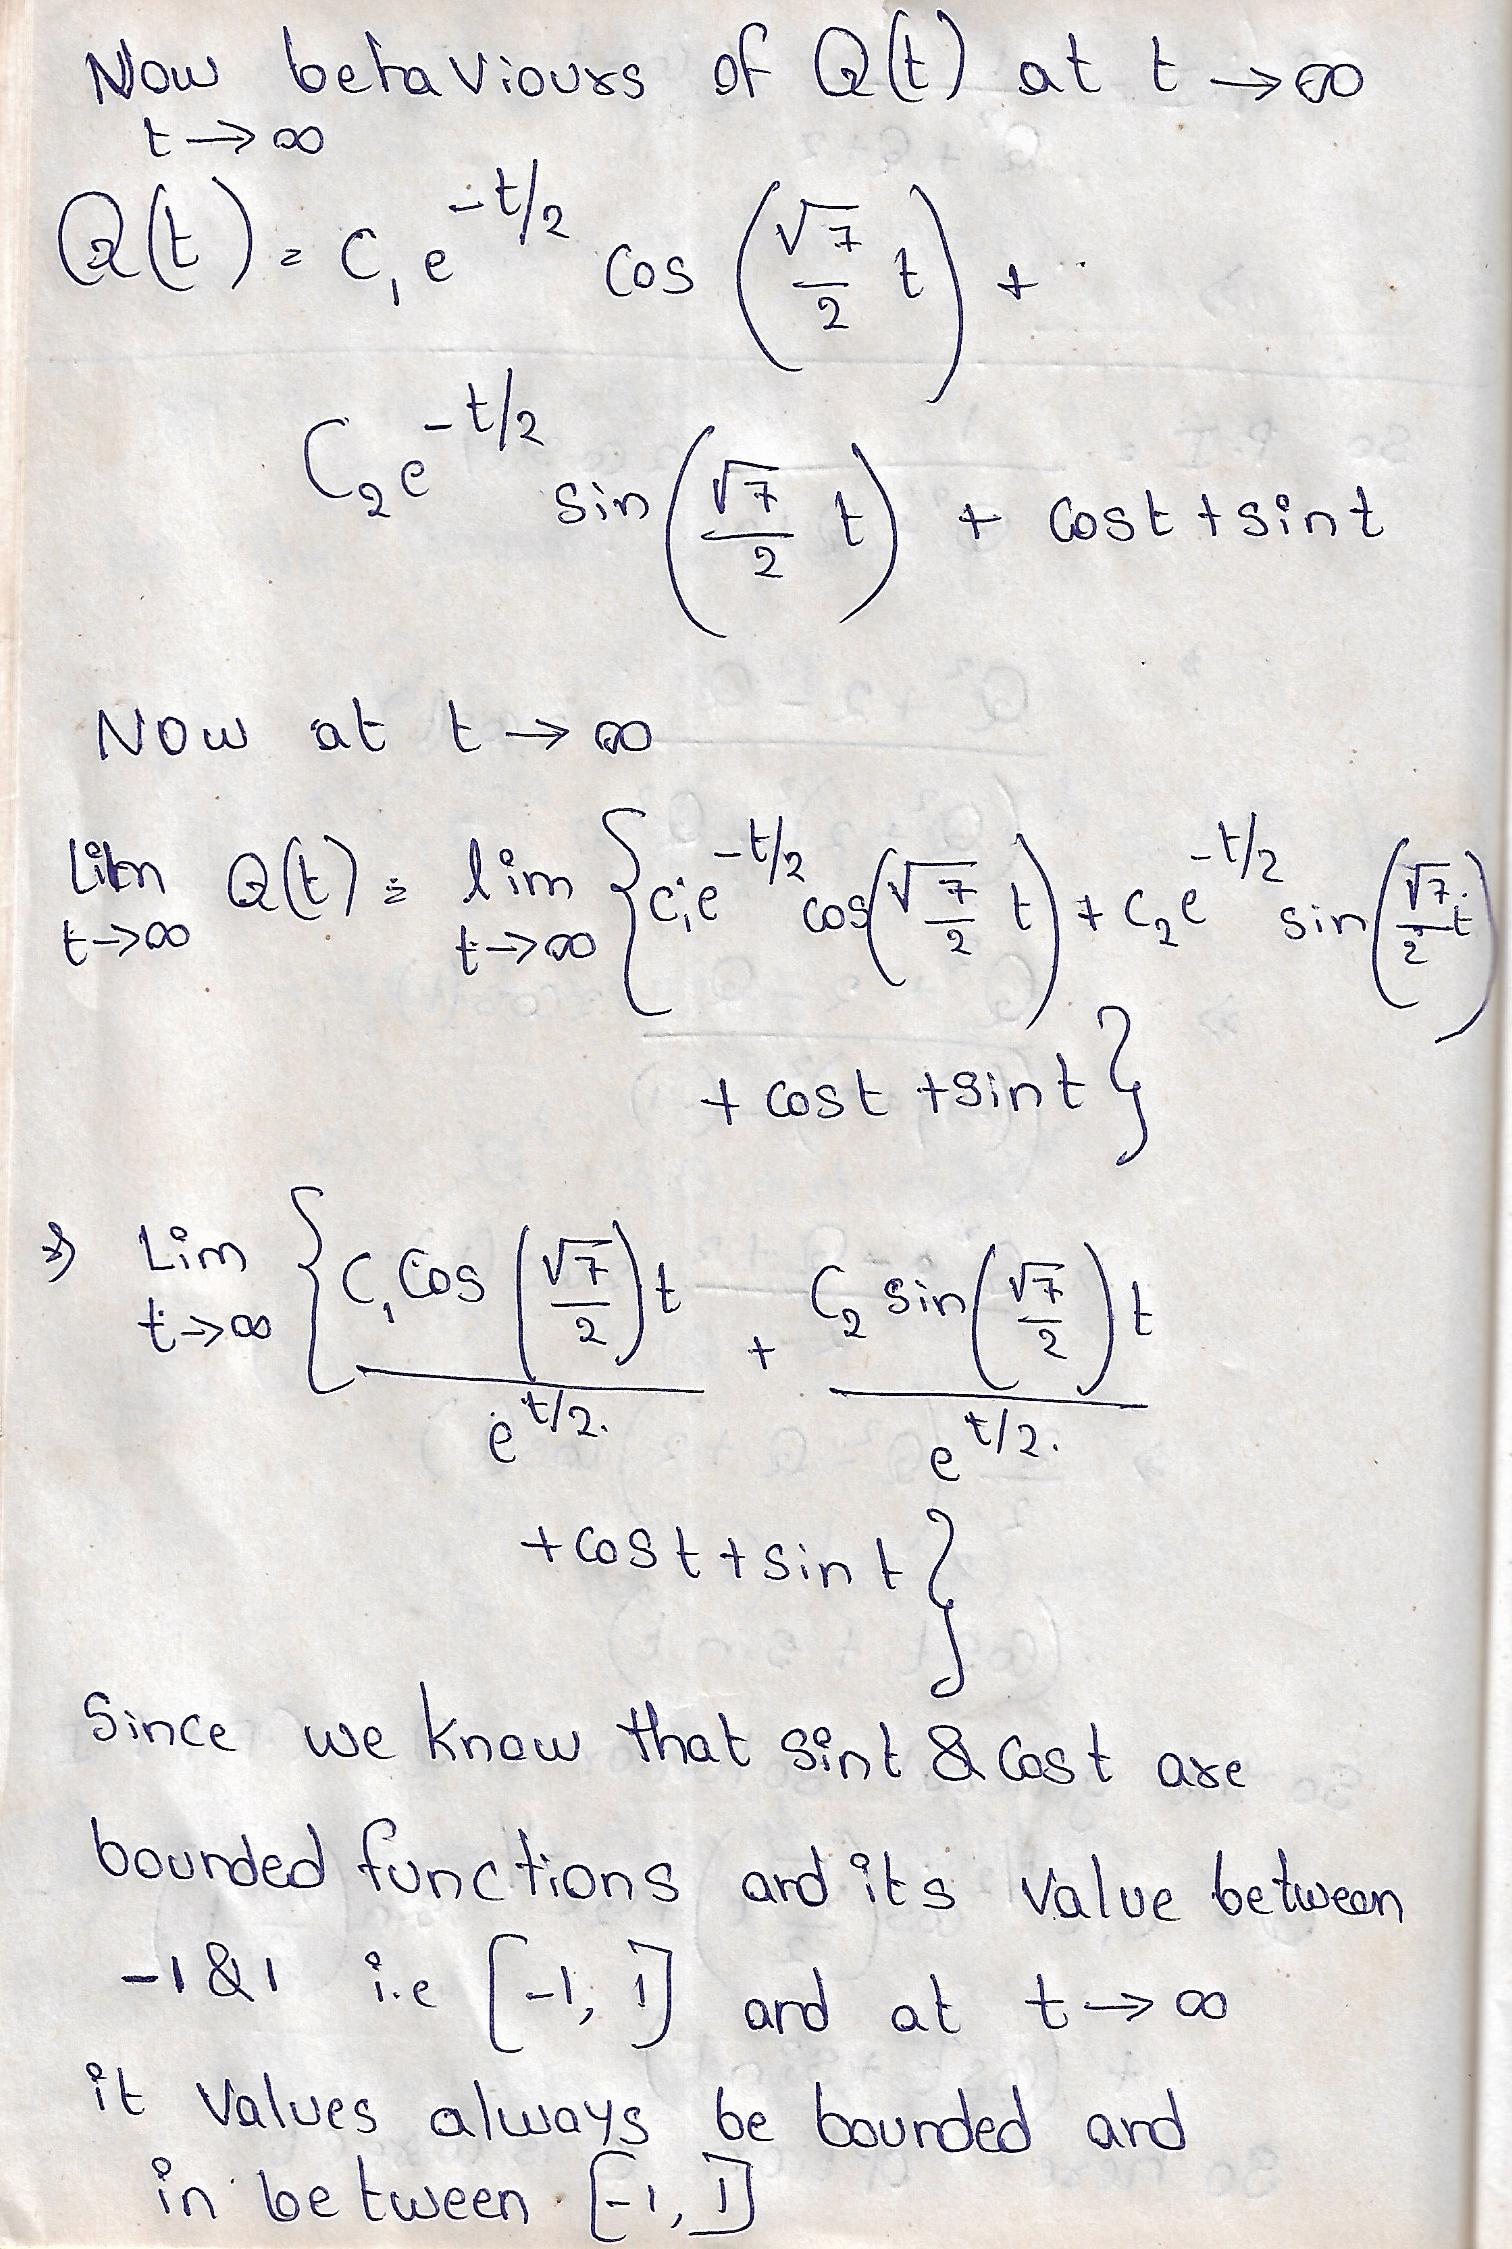 Now behaviours of Q(t) at t → ∞
t → ∞
Q(t) = C₁e^{-t/2} cos (√7/2 t) +
C₂e^{-t/2} sin (√7/2 t) + cost + sint
Now at t → ∞
Lim t→∞ Q(t) = lim t→∞ {C₁e^{-t/2} cos(√7/2 t) + C₂e^{-t/2} sin(√7/2 t)
+ cost + sint}
⇒ Lim t→∞ {C₁ Cos (√7/2)t / e^{t/2} + C₂ sin(√7/2)t / e^{t/2}
+ cost + sint}
Since we know that sint & cost are
bounded functions and its value between
-1 & 1 i.e [-1, 1] and at t → ∞
it values always be bounded and
in between [-1, 1]